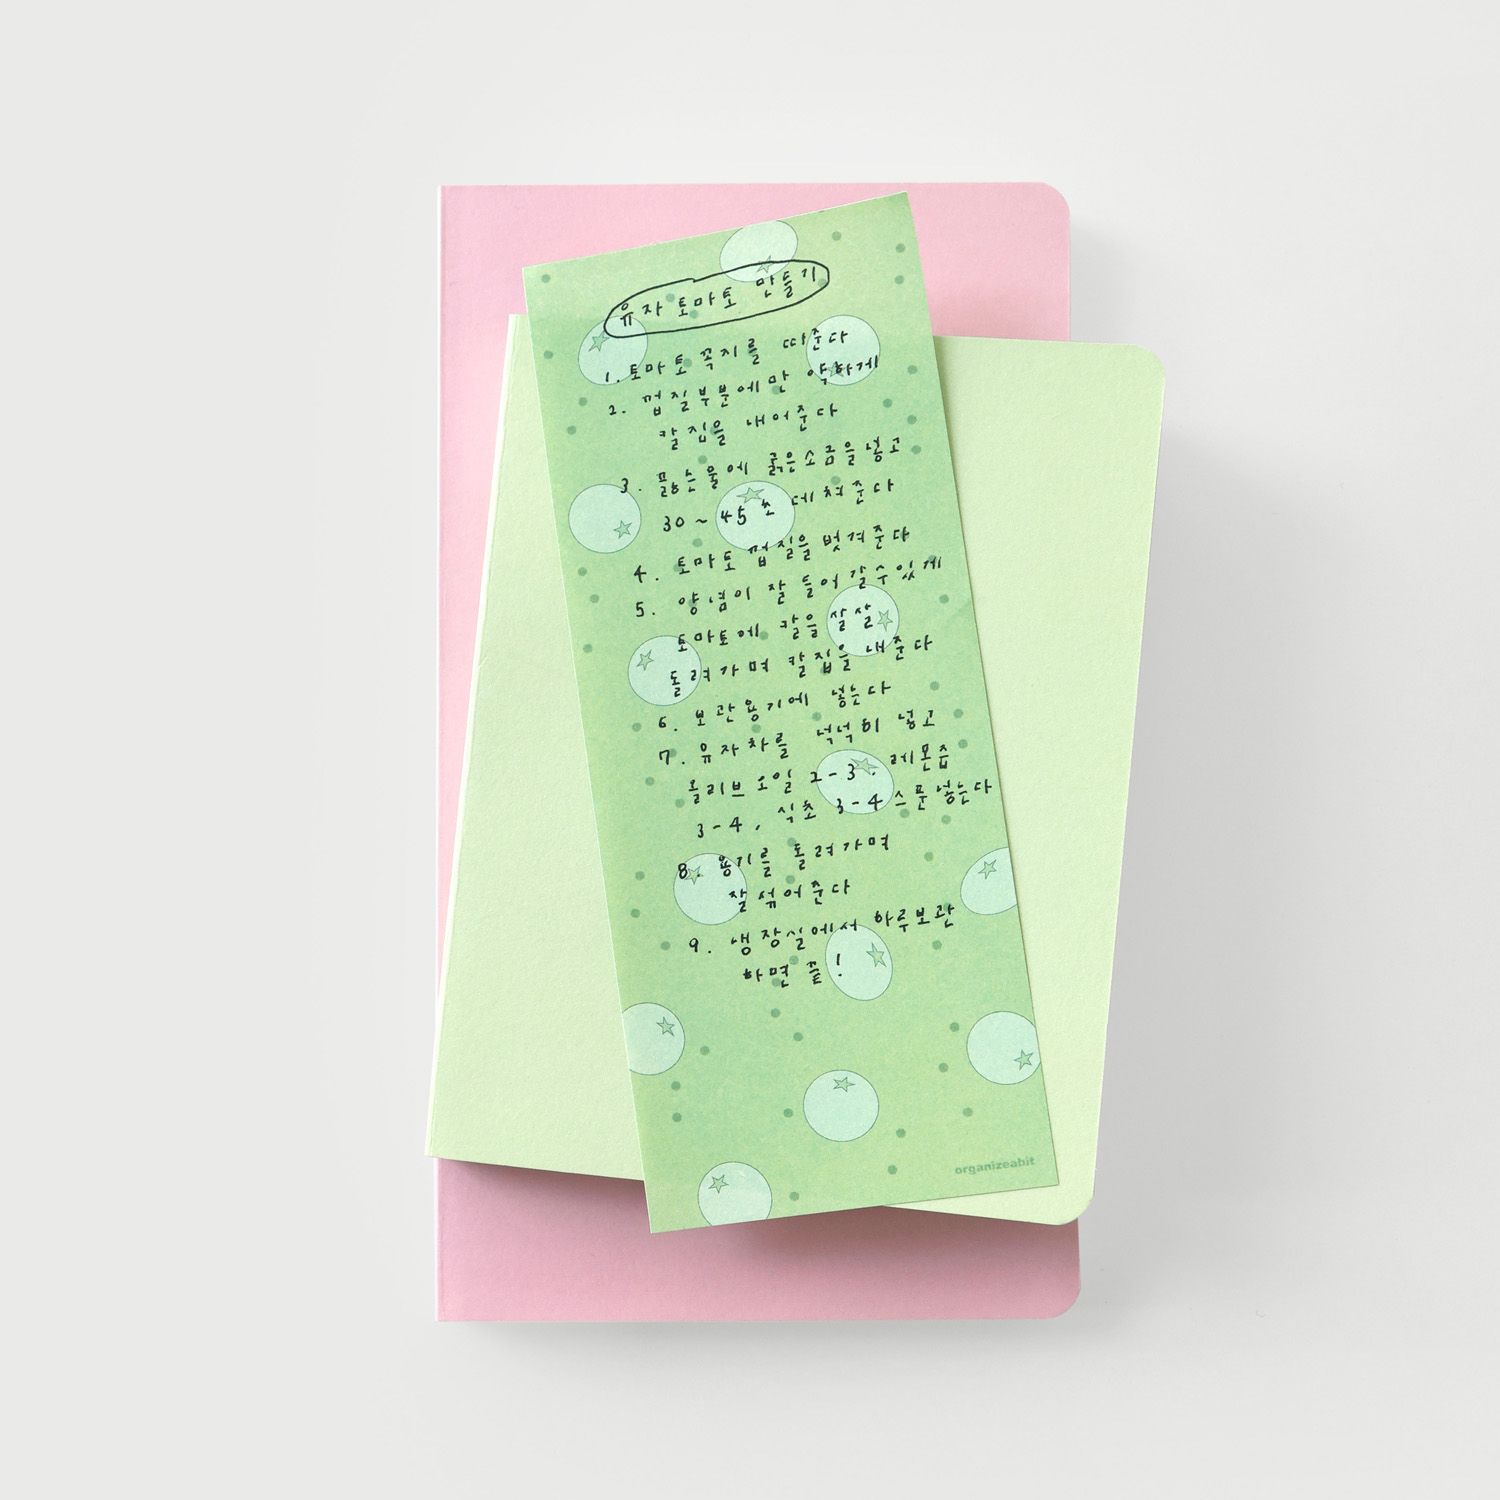 유자토마토 만들기
1. 토마토 꼭지를 따준다
2. 껍질부분에만 약하게
칼집을 내어준다
3. 끓는물에 굵은소금을 넣고
30~45초 데쳐준다
4. 토마토 껍질을 벗겨준다
5. 양념이 잘 들어갈수있게
토마토에 칼을 살살
돌려가며 칼집을 내준다
6. 보관용기에 넣는다
7. 유자차를 넉넉히 넣고
올리브오일 2-3, 레몬즙
3-4, 식초 3-4스푼넣는다
8. 용기를 돌려가며
잘섞어준다
9. 냉장실에서 하루보관
하면 끝!
organizeabit